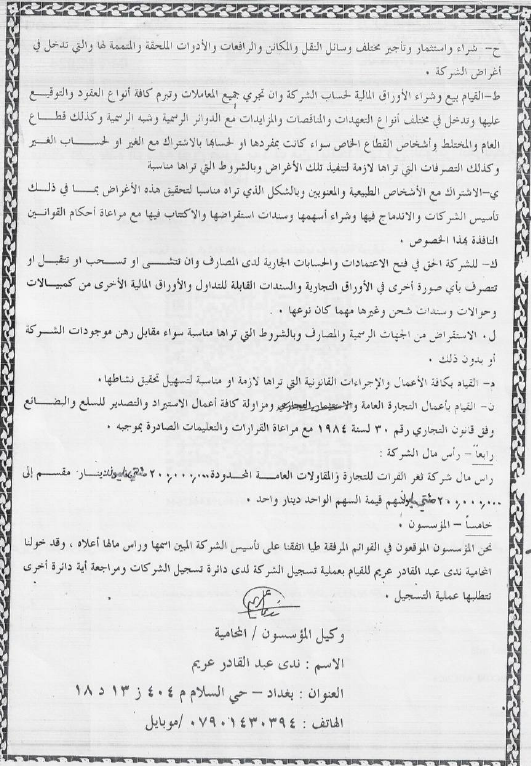 ح- شراء واستثمار وتأجير مختلف وسائل النقل والمكائن والرافعات والأدوات الملحقة والمتممة لها والتي تدخل في
أغراض الشركة .
ط-القيام ببيع وشراء الأوراق المالية لحساب الشركة وان تجري جميع المعاملات وتبرم كافة أنواع العقود والتوقيع
عليها وتدخل في مختلف أنواع التعهدات والمناقصات والمزايدات مع الدوائر الرسمية وشبه الرسمية وكذلك قطاع
العام والمختلط وأشخاص القطاع الخاص سواء كانت بمفردها او لحسابها بالاشتراك مع الغير او لحساب الغير
وكذلك التصرفات التي تراها لازمة لتنفيذ تلك الأغراض وبالشروط التي تراها مناسبة
ي-الاشتراك مع الأشخاص الطبيعية والمعنويين وبالشكل الذي تراه مناسبا لتحقيق هذه الأغراض بما في ذلك
تأسيس الشركات والاندماج فيها وشراء أسهمها وسندات استقراضها والاكتتاب فيها مع مراعاة أحكام القوانين
النافذة بهذا الخصوص .
ك- للشركة الحق في فتح الاعتمادات والحسابات الجارية لدى المصارف وان تنشى او تسحب او تتقبل او
تتصرف بأي صورة أخرى في الأوراق التجارية والسندات القابلة للتداول والأوراق المالية الأخرى من كمبيالات
وحوالات وسندات شحن وغيرها مهما كان نوعها .
ل. الاستقراض من الجهات الرسمية والمصارف وبالشروط التي تراها مناسبة سواء مقابل رهن موجودات الشركة
أو بدون ذلك .
م- القيام بكافة الأعمال والإجراءات القانونية التي تراها لازمة او مناسبة لتسهيل تحقيق نشاطها.
ن- القيام بأعمال التجارة العامة ومزاولة كافة أعمال الاستيراد والتصدير للسلع والبضائع
وفق قانون التجاري رقم ٣٠ لسنة ١٩٨٤ مع مراعاة القرارات والتعليمات الصادرة بموجبه .
رابعاً- رأس مال الشركة :
راس مال شركة ثغر الفرات للتجارة والمقاولات العامة المحدودة ٢٠٠,٠٠٠,٠٠٠ دينار مقسم إلى
٢٠٠,٠٠٠,٠٠٠ سهم قيمة السهم الواحد دينار واحد .
خامساً - المؤسسون .
نحن المؤسسون الموقعون في القوائم المرفقة طيا اتفقنا على تأسيس الشركة المبين اسمها وراس مالها أعلاه ، وقد خولنا
المحامية ندى عبد القادر عريم للقيام بعملية تسجيل الشركة لدى دائرة تسجيل الشركات ومراجعة أية دائرة أخرى
تتطلبها عملية التسجيل .
وكيل المؤسسون / المحامية
الاسم : ندى عبد القادر عريم
العنوان : بغداد – حي السلام م ٤٠٤ ز ١٣ د ١٨
الهاتف : ٠٧٩٠١٤٣٠٣٩٤ /موبايل